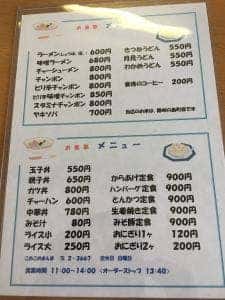 お食事 メニュー
ラーメン(しょうゆ、塩) 600円
味噌ラーメン 680円
チャーシューメン 800円
チャンポン 800円
ピリ辛チャンポン 800円
ピリ辛味噌チャンポン 850円
スタミナチャンポン 850円
ヤキソバ 700円
きつねうどん 550円
月見うどん 550円
わかめうどん 550円
食後のコーヒー 200円
お食事 メニュー
玉子丼 550円
親子丼 650円
カツ丼 800円
チャーハン 600円
中華丼 780円
みそ汁 80円
ライス小 200円
ライス大 250円
からあげ定食 900円
ハンバーグ定食 900円
とんかつ定食 900円
生姜焼き定食 900円
みそ豚定食 900円
おにぎり1ヶ 120円
おにぎり2ヶ 200円
☎ 2-3667 定休日 日曜日
営業時間 11:00~14:00 (オーダーストップ 13:40)